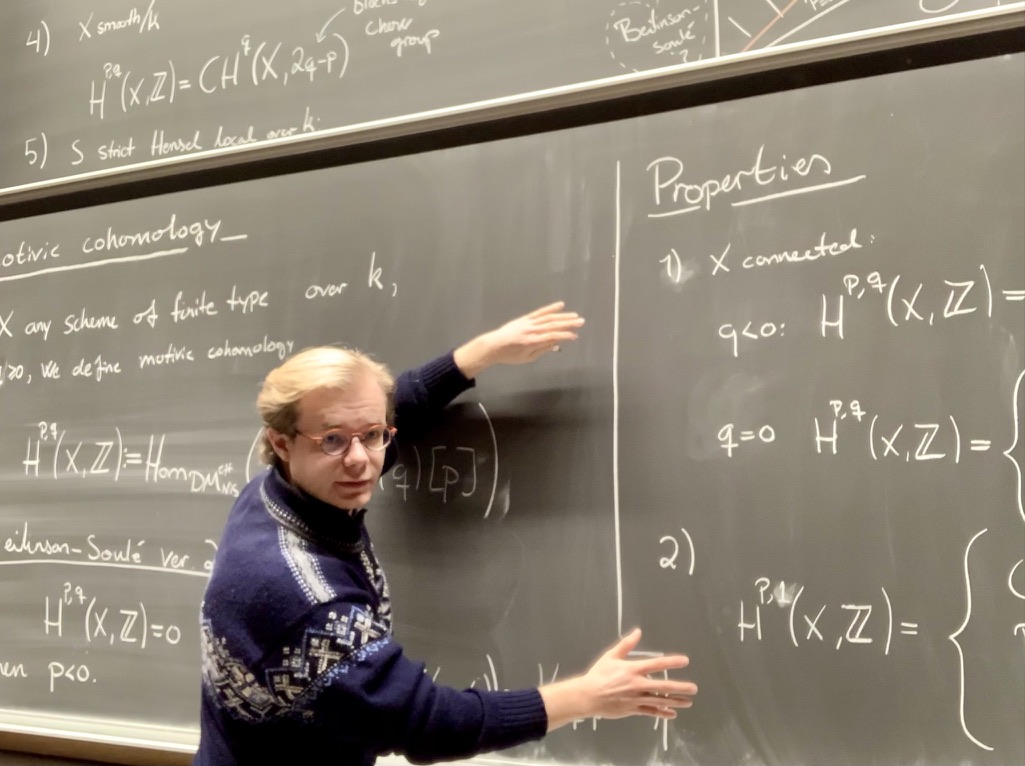 4) X smooth/k
chow
group
H^{p,q}(X,ℤ) = CH^q(X, 2q-p)
5) S strict Hensel local over k.
Beilinson-
Soulé
?
otivic cohomology
X any scheme of finite type over k,
≥0, we define motivic cohomology
H^{p,q}(X,ℤ) := Hom_{DM
q)[p])
eilinson-Soulé ver. 2
H^{p,q}(X,ℤ)=0
en p<0.
Properties
1) X connected:
q<0: H^{p,q}(X,ℤ) =
q=0 H^{p,q}(X,ℤ) = {
2)
H^{p,1}(X,ℤ) = {